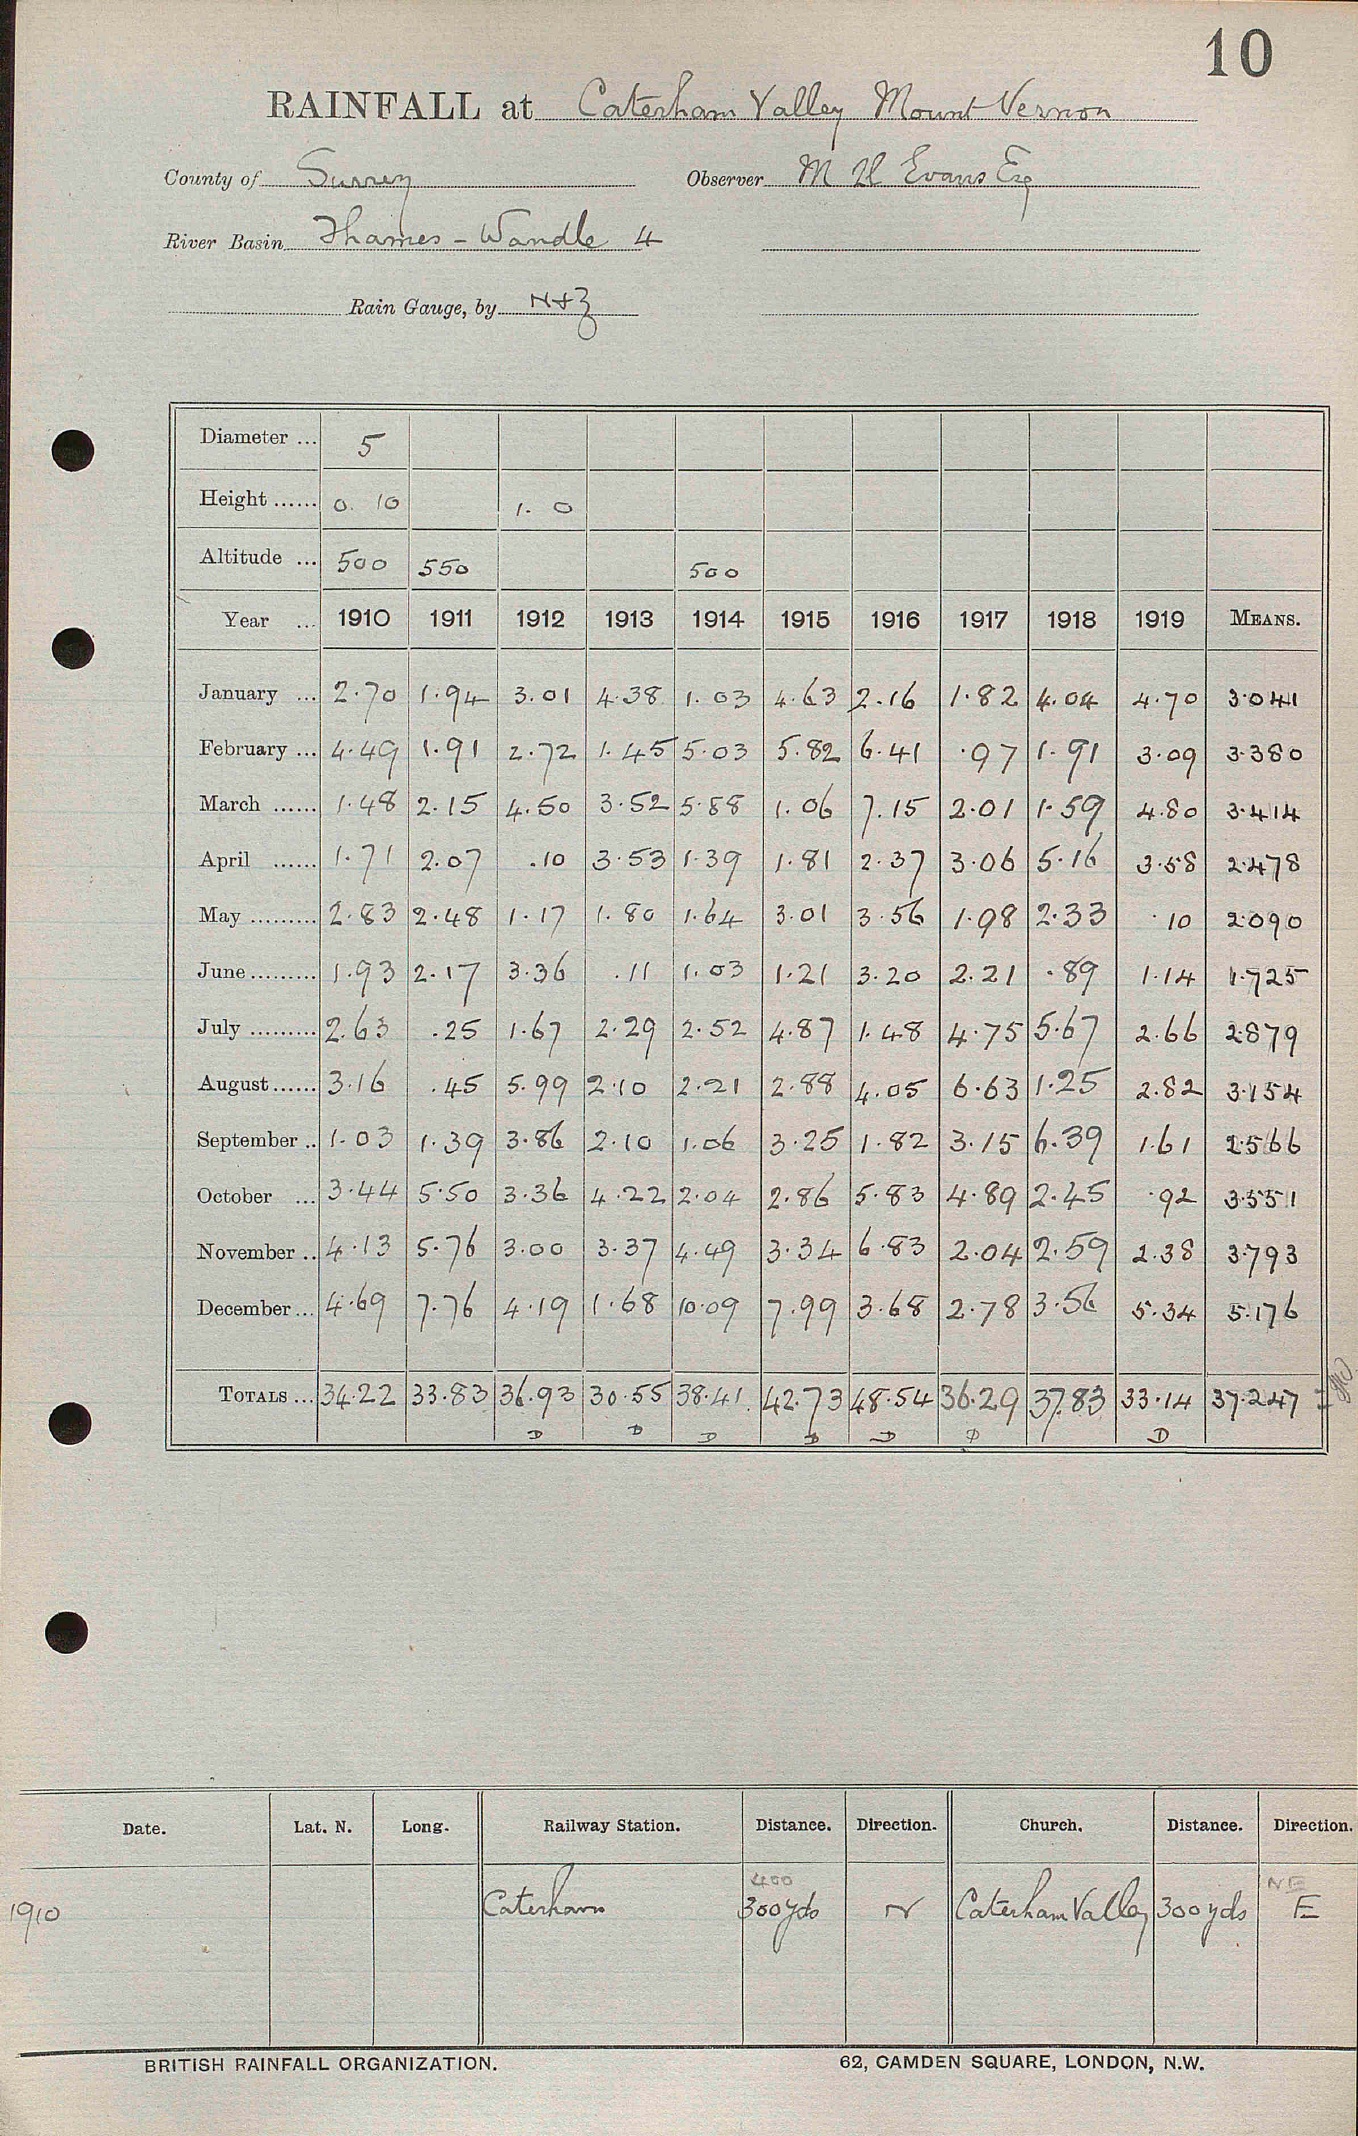 10
RAINFALL at Caterham Valley Mount Vernon
County of Surrey Observer M H Evans Esq
River Basin Thames - Wandle 4
Rain Gauge, by N+Z
Diameter ... 5
Height ...... 0. 10 1. 0
Altitude ... 500 550 500
Year ... 1910 1911 1912 1913 1914 1915 1916 1917 1918 1919 MEANS.
January ... 2.70 1.94 3.01 4.38 1.03 4.63 2.16 1.82 4.04 4.70 3.041
February ... 4.49 1.91 2.72 1.45 5.03 5.82 6.41 .97 1.91 3.09 3.380
March ...... 1.48 2.15 4.50 3.52 5.88 1.06 7.15 2.01 1.59 4.80 3.414
April ...... 1.71 2.07 .10 3.53 1.39 1.81 2.37 3.06 5.16 3.58 2.478
May ......... 2.83 2.48 1.17 1.80 1.64 3.01 3.56 1.98 2.33 .10 2.090
June ......... 1.93 2.17 3.36 .11 1.03 1.21 3.20 2.21 .89 1.14 1.725
July ......... 2.63 .25 1.67 2.29 2.52 4.87 1.48 4.75 5.67 2.66 2.879
August ...... 3.16 .45 5.99 2.10 2.21 2.88 4.05 6.63 1.25 2.82 3.154
September .. 1.03 1.39 3.86 2.10 1.06 3.25 1.82 3.15 6.39 1.61 2.566
October ... 3.44 5.50 3.36 4.22 2.04 2.86 5.83 4.89 2.45 .92 3.551
November .. 4.13 5.76 3.00 3.37 4.49 3.34 6.83 2.04 2.59 2.38 3.793
December ... 4.69 7.76 4.19 1.68 10.09 7.99 3.68 2.78 3.56 5.34 5.176
TOTALS ... 34.22 33.83 36.93 30.55 38.41 42.73 48.54 36.29 37.83 33.14 37.247
D D D D D D D
Date. Lat. N. Long. Railway Station. Distance. Direction. Church. Distance. Direction.
400 NE
1910 Caterham 300 yds N Caterham Valley 300 yds E
BRITISH RAINFALL ORGANIZATION. 62, CAMDEN SQUARE, LONDON, N.W.